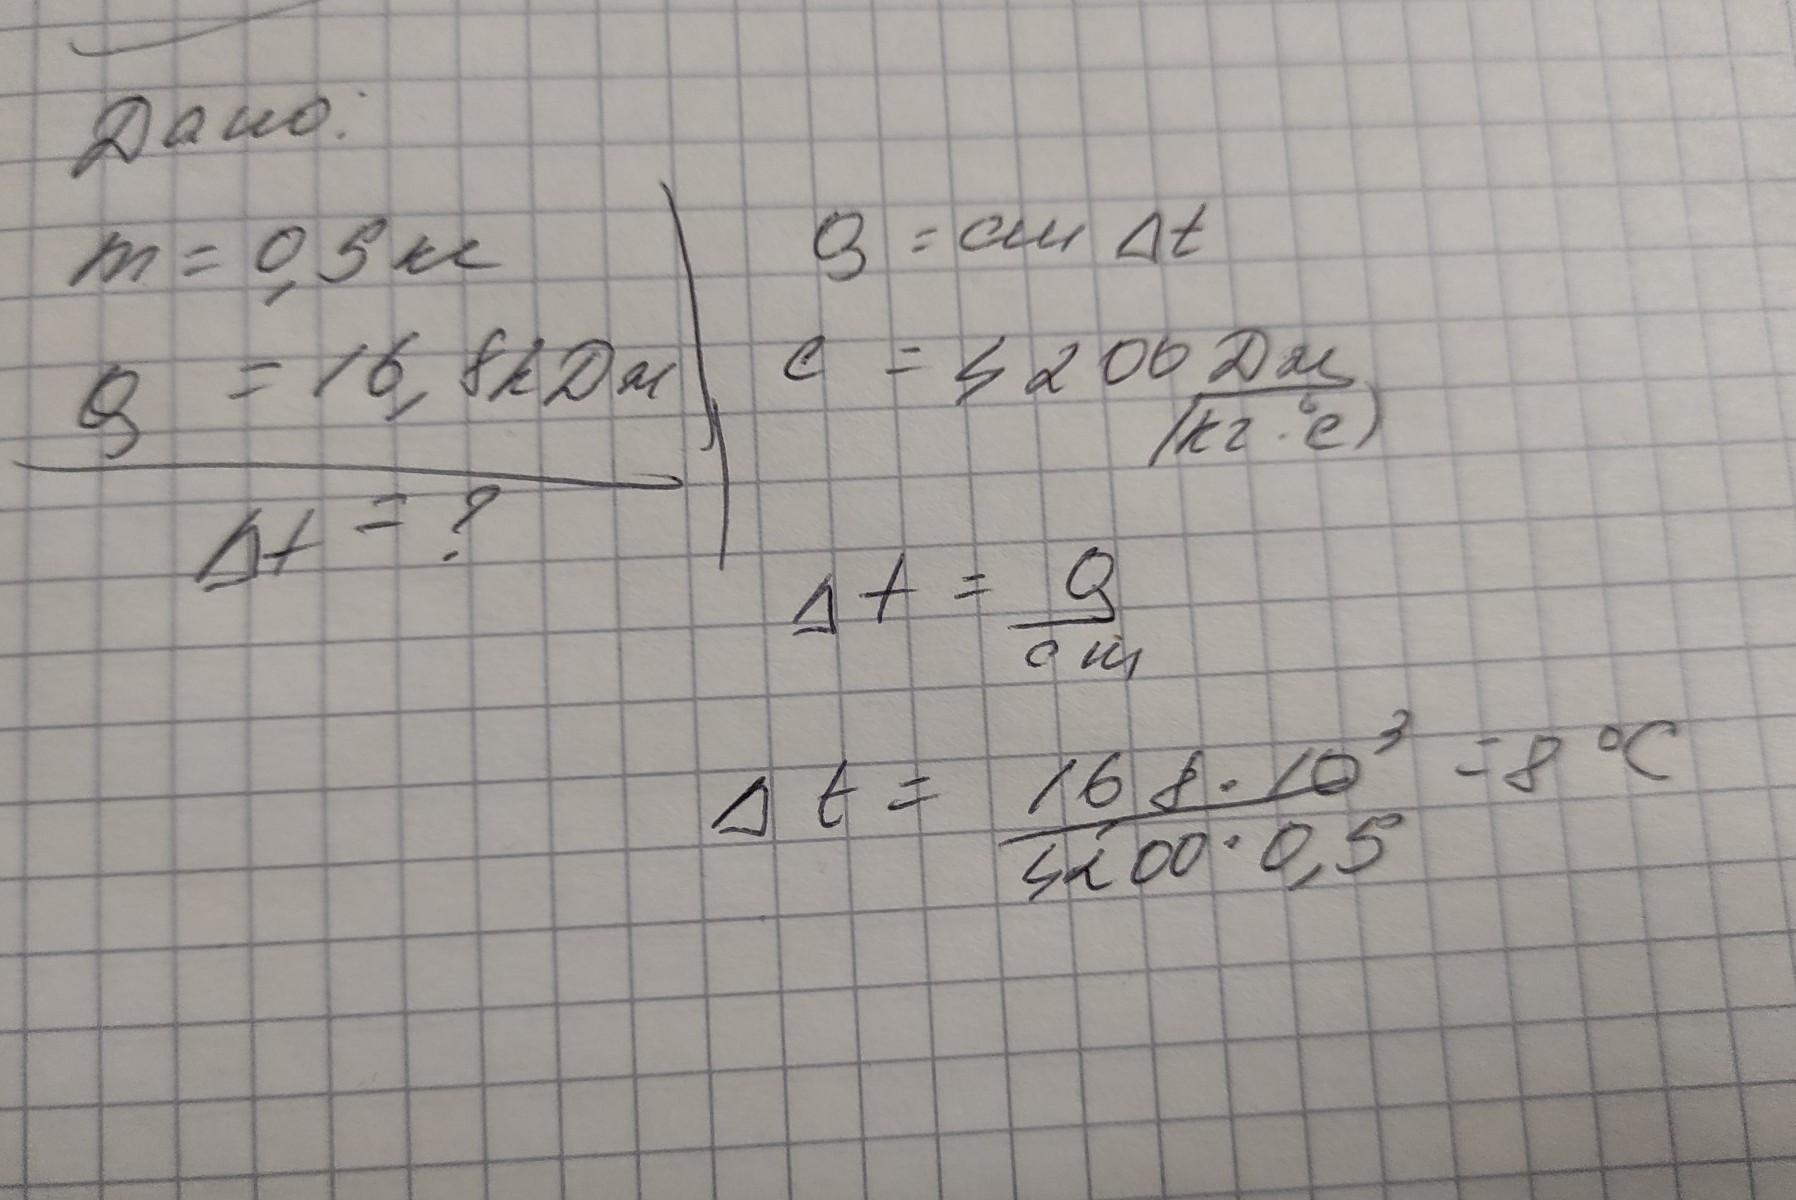 Дано:
m = 0,5 кг
Q = 16,8 kДж
Δt = ?
Q = cm Δt
c = 4200 Дж/(кг·°c)
Δt = Q/cm
Δt = 16 8·10³/4200·0,5 = 8 °C